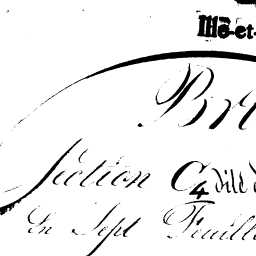 Ille-et-
Section C4 dite d
En Sept Feuille